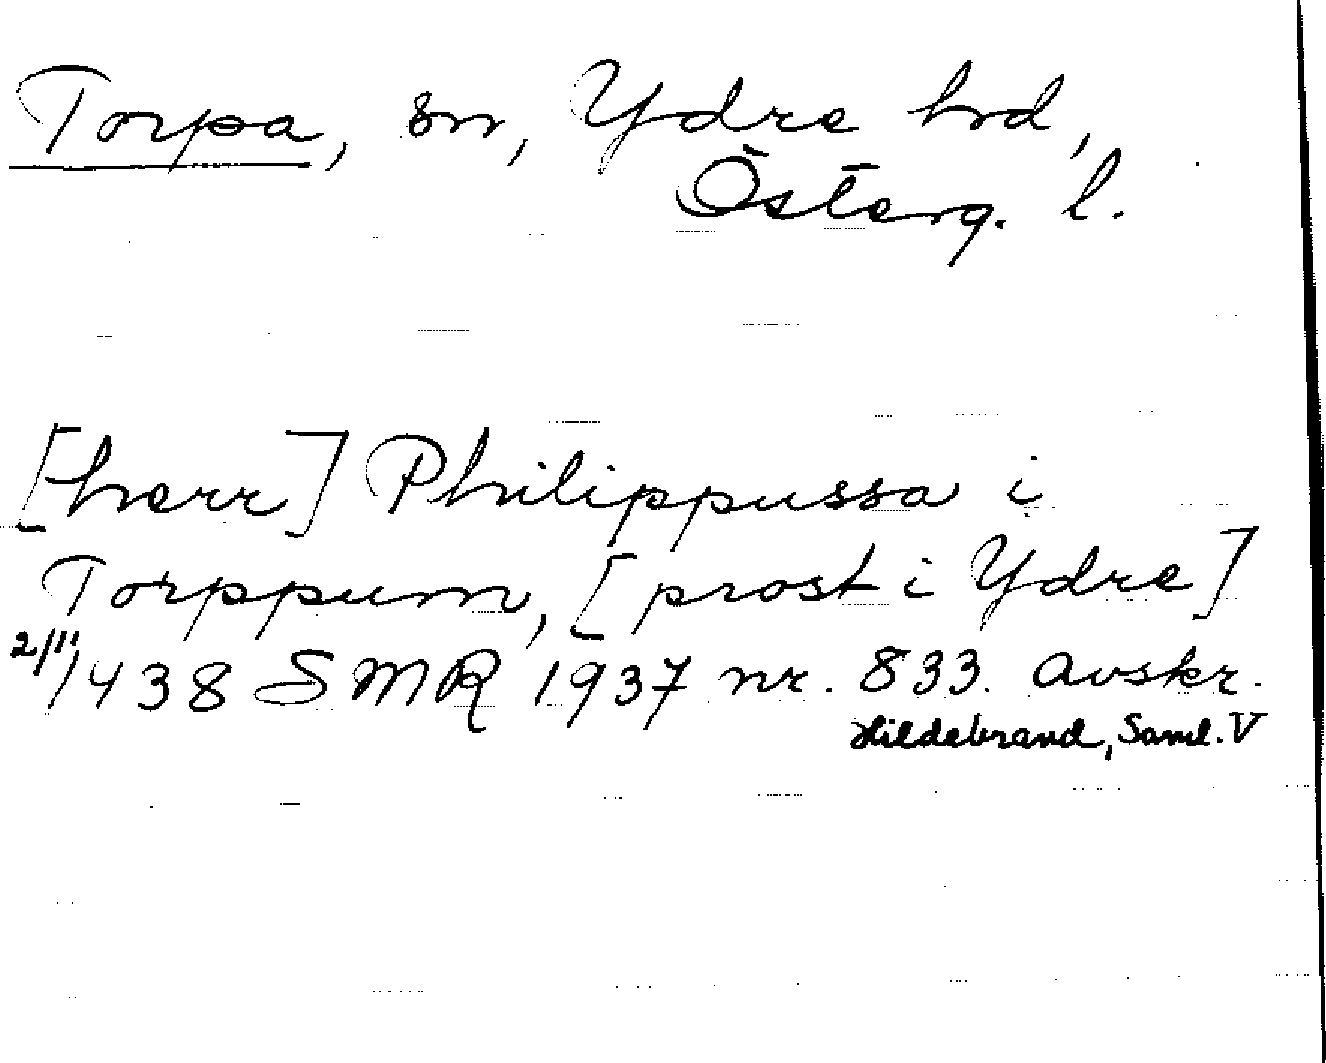 Torpa, sn, Ydre hd,
Österg. l.
[herr] Philippussa i
Torppum, [prost i Ydre]
2/11 1438 SMR 1937 nr. 833. Avskr.
Hildebrand, Saml. V